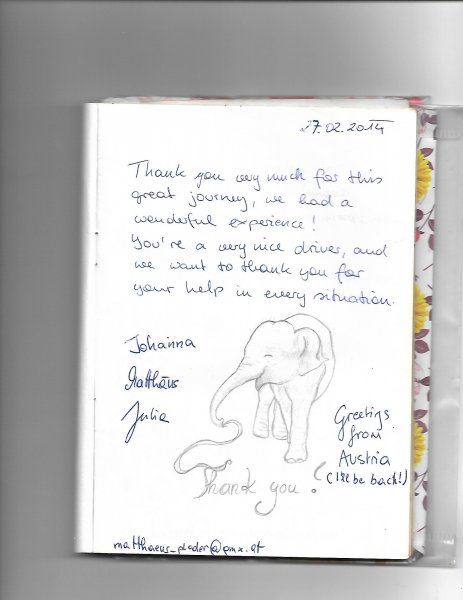 27.02.2014
Thank you very much for this
great journey, we had a
wonderful experience!
You're a very nice driver, and
we want to thank you for
your help in every situation.
Johanna
Matthäus
Julia
Greetings
from
Austria
(I'll be back!)
Thank you!